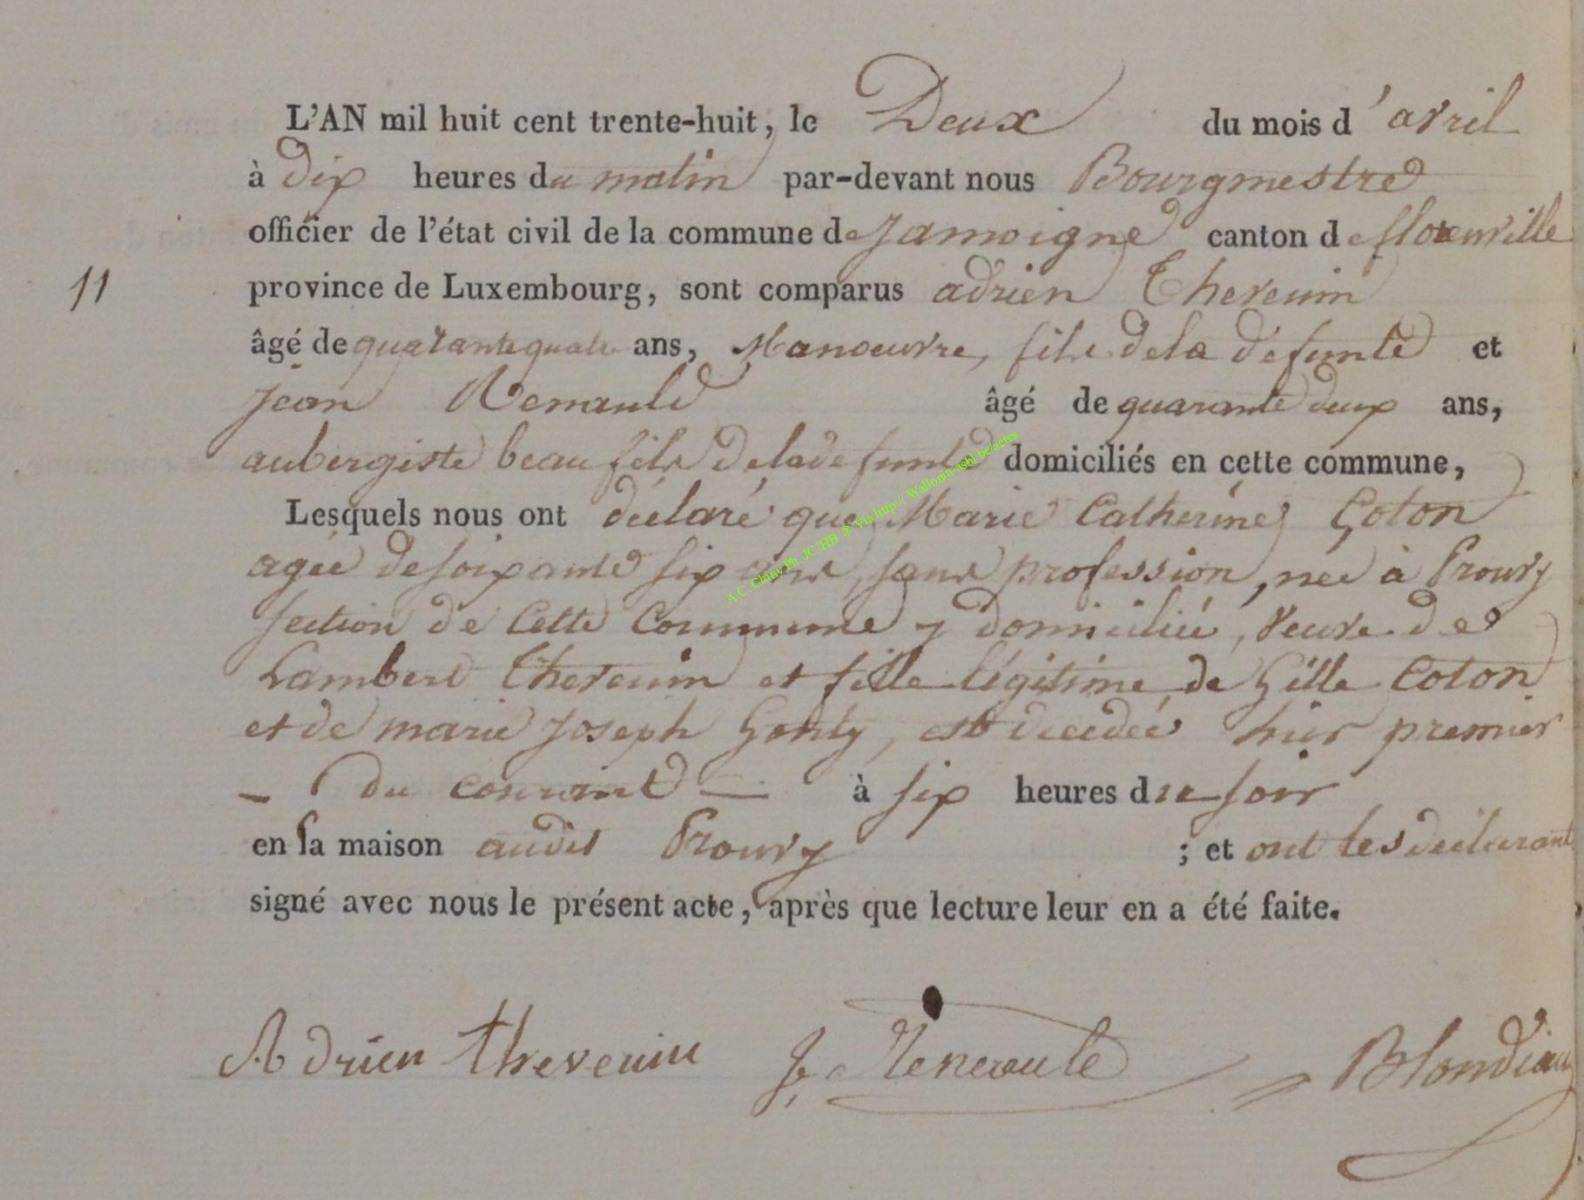 L'AN mil huit cent trente-huit, le Deux du mois d'avril
à dix heures du matin par-devant nous Bourgmestre
officier de l'état civil de la commune de Jamoigne canton de florenville
11
province de Luxembourg, sont comparus adrien Thevenin
âgé de quarante quatre ans, Manoeuvre, fils de la défunte et
Jean Renauld âgé de quarante deux ans,
aubergiste beau fils de la defunte domiciliés en cette commune,
Lesquels nous ont déclaré que Marie Catherine Goton
agée de soixante six ans, sans profession, née à Prouvy
section de Cette Commune y domiciliée, veuve de
Lambert Thevenin et fille légitime de Gille Coton
et de marie Joseph, est decedée hier premier
du courant à six heures du soir
en sa maison audit Prouvy ; et ont les déclarant
signé avec nous le présent acte, après que lecture leur en a été faite.
Adrien thevenin J. Renauld Blondiau